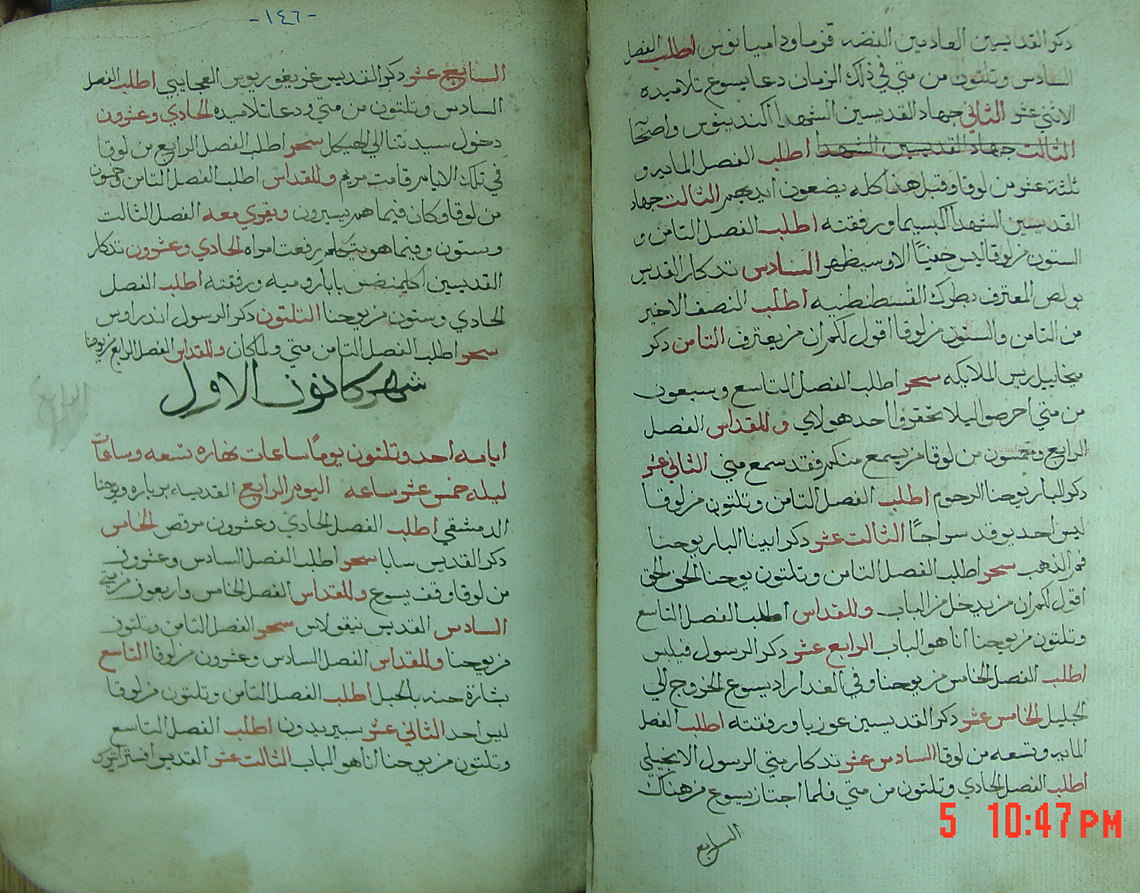 ذكر القديسين العادمين الفضه قزما وداميانوس اطلب الفصل
السادس وثلثون من متي في ذلك الزمان دعا يسوع تلاميذه
الاثني عشر الثاني جهاد القديسين الشهدا اكندينوس واصحا
الثالث جهاد القديسين الشهدا اطلب الفصل المايه و
ثلثة عشر من لوقا وقبل هذا كله يضعون ايديهم الثالث جهاد
القديسين الشهدا اكبسيما ورفقته اطلب الفصل الثامن و
الستون من لوقا ليس خفيًا الا وسيظهر السادس تذكار القديس
بولص المعترف بطرك القسطنطينيه اطلب النصف الاخير
من الثامن والستون من لوقا اقول لكم ان من يعترف الثامن ذكر
ميخاييل ريس الملايكه سحر اطلب الفصل التاسع وسبعون
من متي احرصوا ليلا تحقروا احد هولاي وللقداس الفصل
الرابع وخمسون من لوقا من يسمع منكم فقد سمع مني الثاني عشر
ذكر البار يوحنا الرحوم اطلب الفصل الثامن وثلثون من لوقا
ليس احد يوقد سراجًا الثالث عشر ذكر ابينا البار يوحنا
فم الذهب سحر اطلب الفصل الثامن وثلثون يوحنا الحق الحق
اقول لكم ان من يدخل من الباب وللقداس اطلب الفصل التاسع
وثلثون من يوحنا انا هو الباب الرابع عشر ذكر الرسول فيلبس
اطلب الفصل الخامس من يوحنا وفي الغد اراد يسوع الخروج الي
الجليل الخامس عشر ذكر القديسين غوريا ورفقته اطلب الفصل
المايه وتسعه من لوقا السادس عشر تذكار متي الرسول الانجيلي
اطلب الفصل الحادي وثلثون من متي فلما اجتاز يسوع من هناك
السابع
-١٤٦-
السابع عشر ذكر القديس غريغوريوس العجايبي اطلب الفصل
السادس وثلثون من متي ودعا تلاميذه الحادي وعشرون
دخول سيدتنا الي الهيكل سحر اطلب الفصل الرابع من لوقا
في تلك الايام قامت مريم وللقداس اطلب الفصل الثامن وخمسون
من لوقا وكان فيما هم يسيرون ويقري معه الفصل الثالث
وستون وفيما هو يتكلم رفعت امراه الحادي وعشرون تذكار
القديسين اكليمنضس بابا روميه ورفقته اطلب الفصل
الحادي وستون من يوحنا الثلثون ذكر الرسول اندراوس
سحر اطلب الفصل الثامن متي ولما كان وللقداس الفصل الرابع من يوحنا
شهر كانون الاول
ايامه احد وثلثون يومًا ساعات نهاره تسعه وساعات
ليله خمس عشر ساعه اليوم الرابع القديسه برباره ويوحنا
الدمشقي اطلب الفصل الحادي وعشرون مرقص الخامس
ذكر القديس سابا سحر اطلب الفصل السادس وعشرون
من لوقا وقف يسوع وللقداس الفصل الخامس واربعون من متي
السادس القديس نيقولاس سحر الفصل الثامن وثلثون
من يوحنا وللقداس الفصل السادس وعشرون من لوقا التاسع
بشارة حنه بالحبل اطلب الفصل الثامن وثلثون من لوقا
ليس احد الثاني عشر سبيريدون اطلب الفصل التاسع
وثلثون من يوحنا انا هو الباب الثالث عشر القديس افستراتيوس
5 10:47 PM